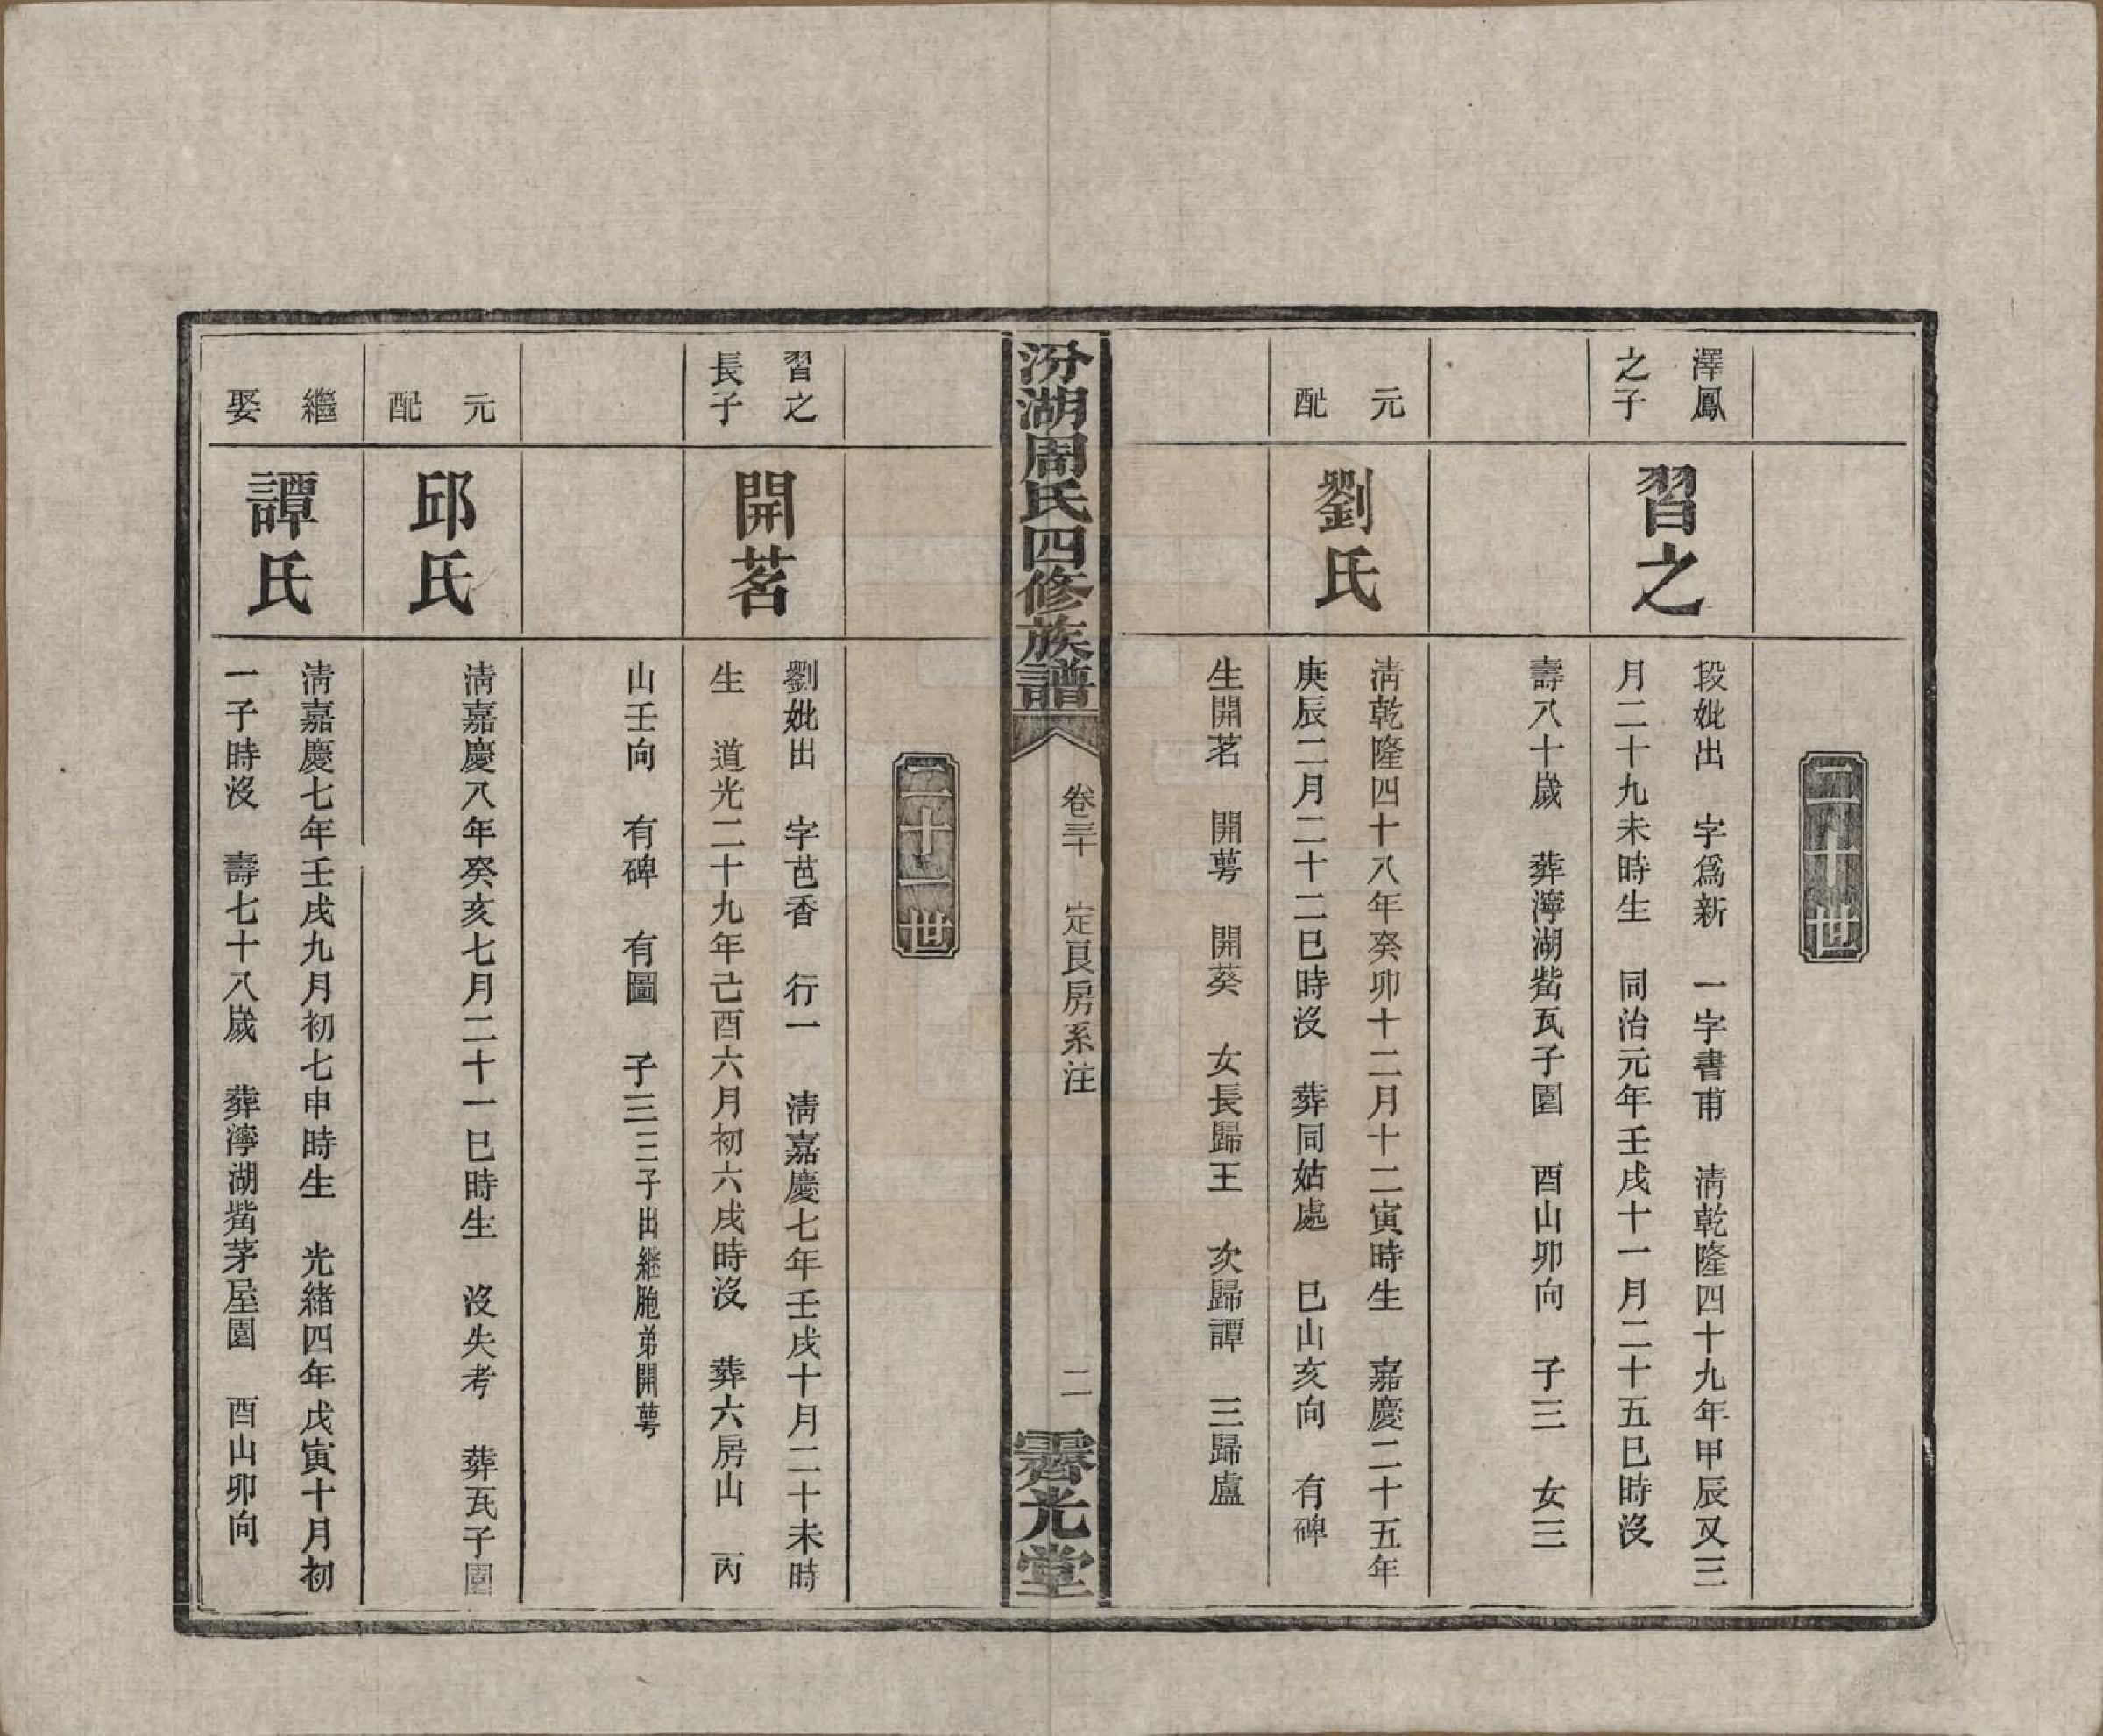 二十世
澤鳳
之子
習之
段妣出　字爲新　一字書甫　淸乾隆四十九年甲辰又三
月二十九未時生　同治元年壬戌十一月二十五巳時沒
壽八十歲　葬濘湖觜瓦子園　酉山卯向　子三　女三
元
配
劉氏
淸乾隆四十八年癸卯十二月十二寅時生　嘉慶二十五年
庚辰二月二十二巳時沒　葬同姑處　巳山亥向　有碑
生開茗　開萼　開葵　女長歸王　次歸譚　三歸盧
汾湖周氏四修族譜
卷三十　定良房系注
二
霽光堂
二十一世
習之
長子
開茗
劉妣出　字芭香　行一　淸嘉慶七年壬戌十月二十未時
生　道光二十九年己酉六月初六戌時沒　葬六房山　丙
山壬向　有碑　有圖　子三三子出継胞弟開萼
元
配
邱氏
淸嘉慶八年癸亥七月二十一巳時生　沒失考　葬瓦子園
繼
娶
譚氏
淸嘉慶七年壬戌九月初七申時生　光緒四年戊寅十月初
一子時沒　壽七十八歲　葬濘湖觜茅屋園　酉山卯向